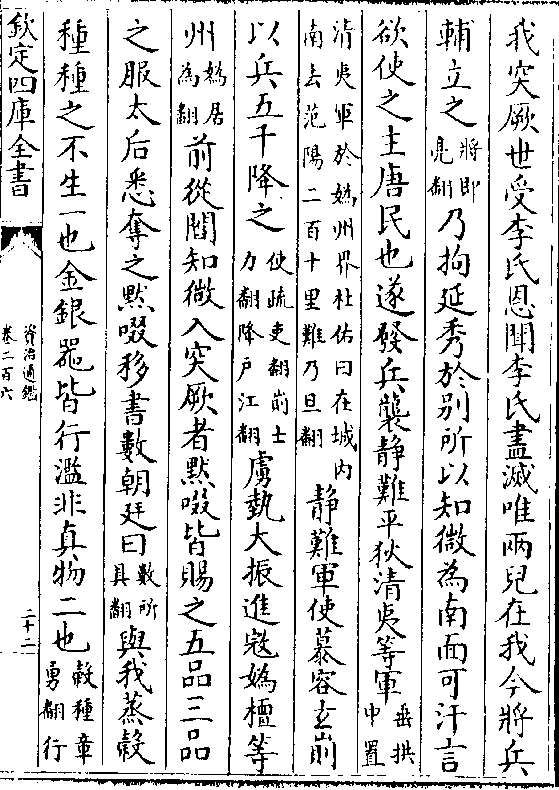 我突厥世受李氏恩聞李氏盡滅唯兩兒在我今將兵
輔立之將即亮翻乃拘延秀於别所以知微為南面可汗言
欲使之主唐民也遂發兵襲静難平狄清夷等軍垂拱中置
清夷軍於媯州界杜佑曰在城内南去范陽二百十里難乃旦翻静難軍使慕容玄崱
以兵五千降之使疏吏翻崱士力翻降户江翻虜埶大振進寇媯檀等
州媯居為翻前從閻知微入突厥者默啜皆賜之五品三品
之服太后悉奪之默啜移書數朝廷曰數所具翻與我蒸穀
種種之不生一也金銀器皆行濫非真物二也穀種章勇翻行
欽定四庫全書
資治通鑑
卷二百六
二十二